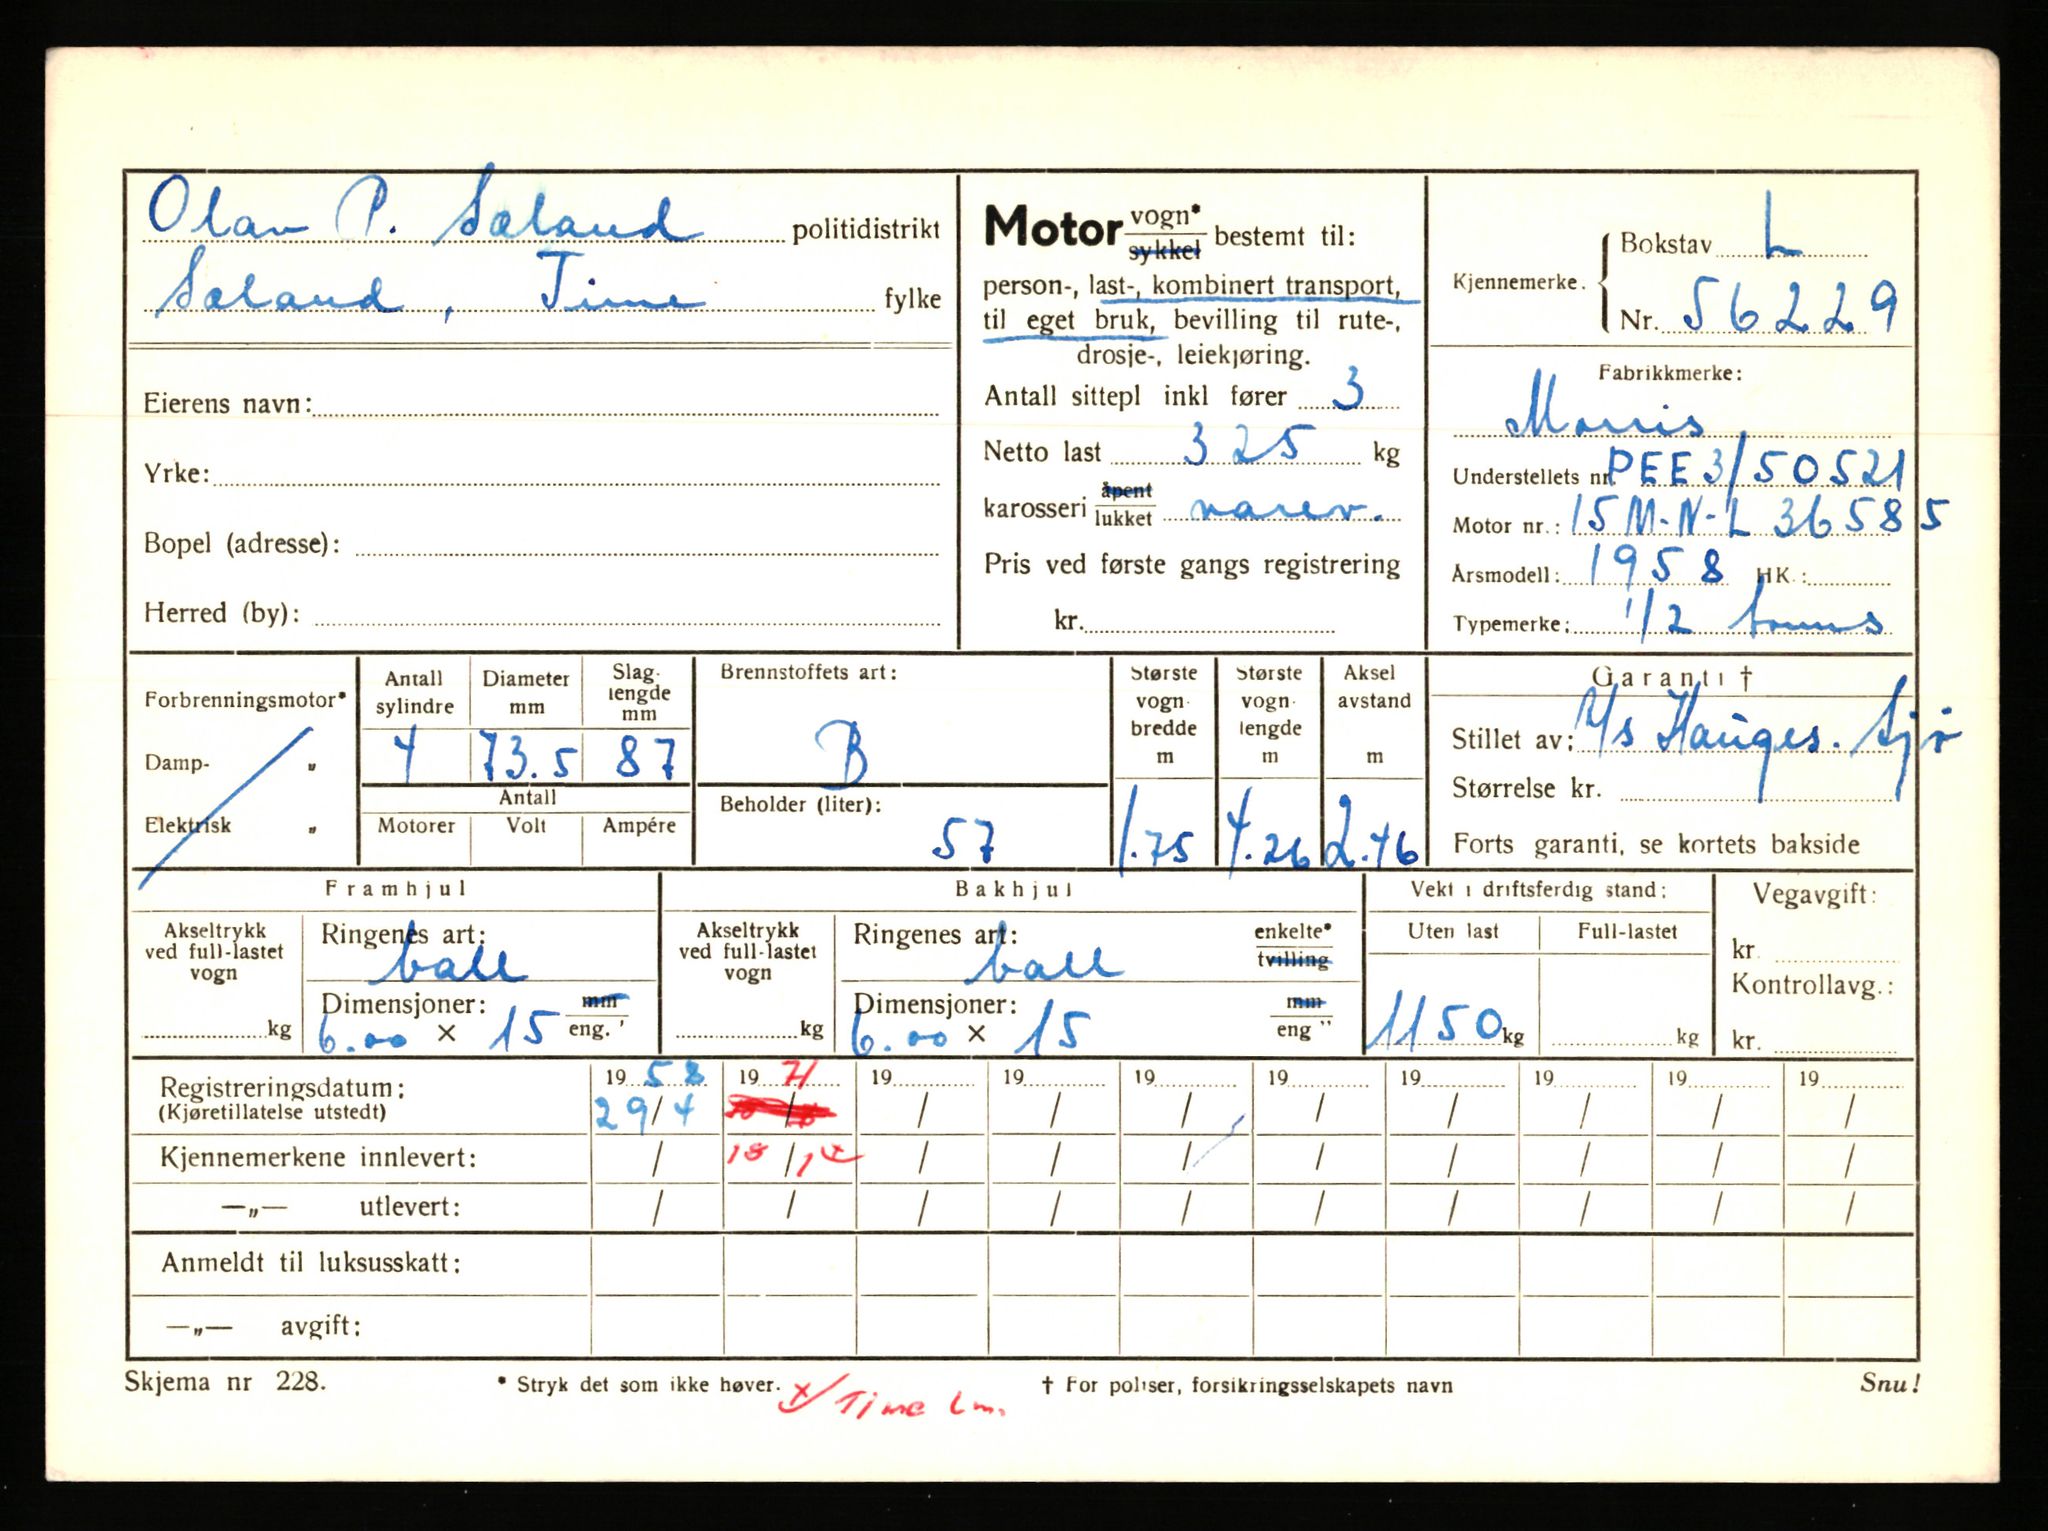 Olav P. Sæland politidistrikt
Sæland, Time fylke
Eierens navn:
Yrke:
Bopel (adresse):
Herred (by):
Motor vogn* sykkel bestemt til:
person-, last-, kombinert transport,
til eget bruk, bevilling til rute-,
drosje-, leiekjøring.
Antall sittepl inkl fører 3
Netto last 325 kg
karosseri åpent lukket varev.
Pris ved første gangs registrering
kr.
Kjennemerke. Bokstav L
Nr. 56229
Fabrikkmerke:
Morris
Understellets nr. PEE3/50521
Motor nr.: 15 M-N-L 36585
Årsmodell: 1958 HK.:
Typemerke: 1/2 tonns
Forbrenningsmotor*
Damp- „
Elektrisk „
Antall sylindre 4
Diameter mm 73.5
Slag. lengde mm 87
Antall
Motorer Volt Ampére
Brennstoffets art:
B
Beholder (liter):
57
Største vogn. bredde m 1.75
Største vogn. lengde m 4.26
Aksel avstand m 2.46
Garanti †
Stillet av: A/s Hauges. Sjø
Størrelse kr.
Forts garanti, se kortets bakside
Framhjul
Akseltrykk ved full-lastet vogn kg
Ringenes art: ball
Dimensjoner: mm
6.00 × 15 eng. '
Bakhjul
Akseltrykk ved full-lastet vogn kg
Ringenes art: ball enkelte* tvilling
Dimensjoner: mm
6.00 × 15 eng "
Vekt i driftsferdig stand:
Uten last Full-lastet
1150 kg kg
Vegavgift:
kr.
Kontrollavg.:
kr.
Registreringsdatum: 19 58 19 71 19 19 19 19 19 19 19 19
(Kjøretillatelse utstedt) 29/4 / / / / / / / / /
Kjennemerkene innlevert: / 18/1 x / / / / / / / /
—„— utlevert: / / / / / / / / / /
Anmeldt til luksusskatt:
—„— avgift:
Skjema nr 228. * Stryk det som ikke høver. † For poliser, forsikringsselskapets navn Snu!
x/ Time Lm.